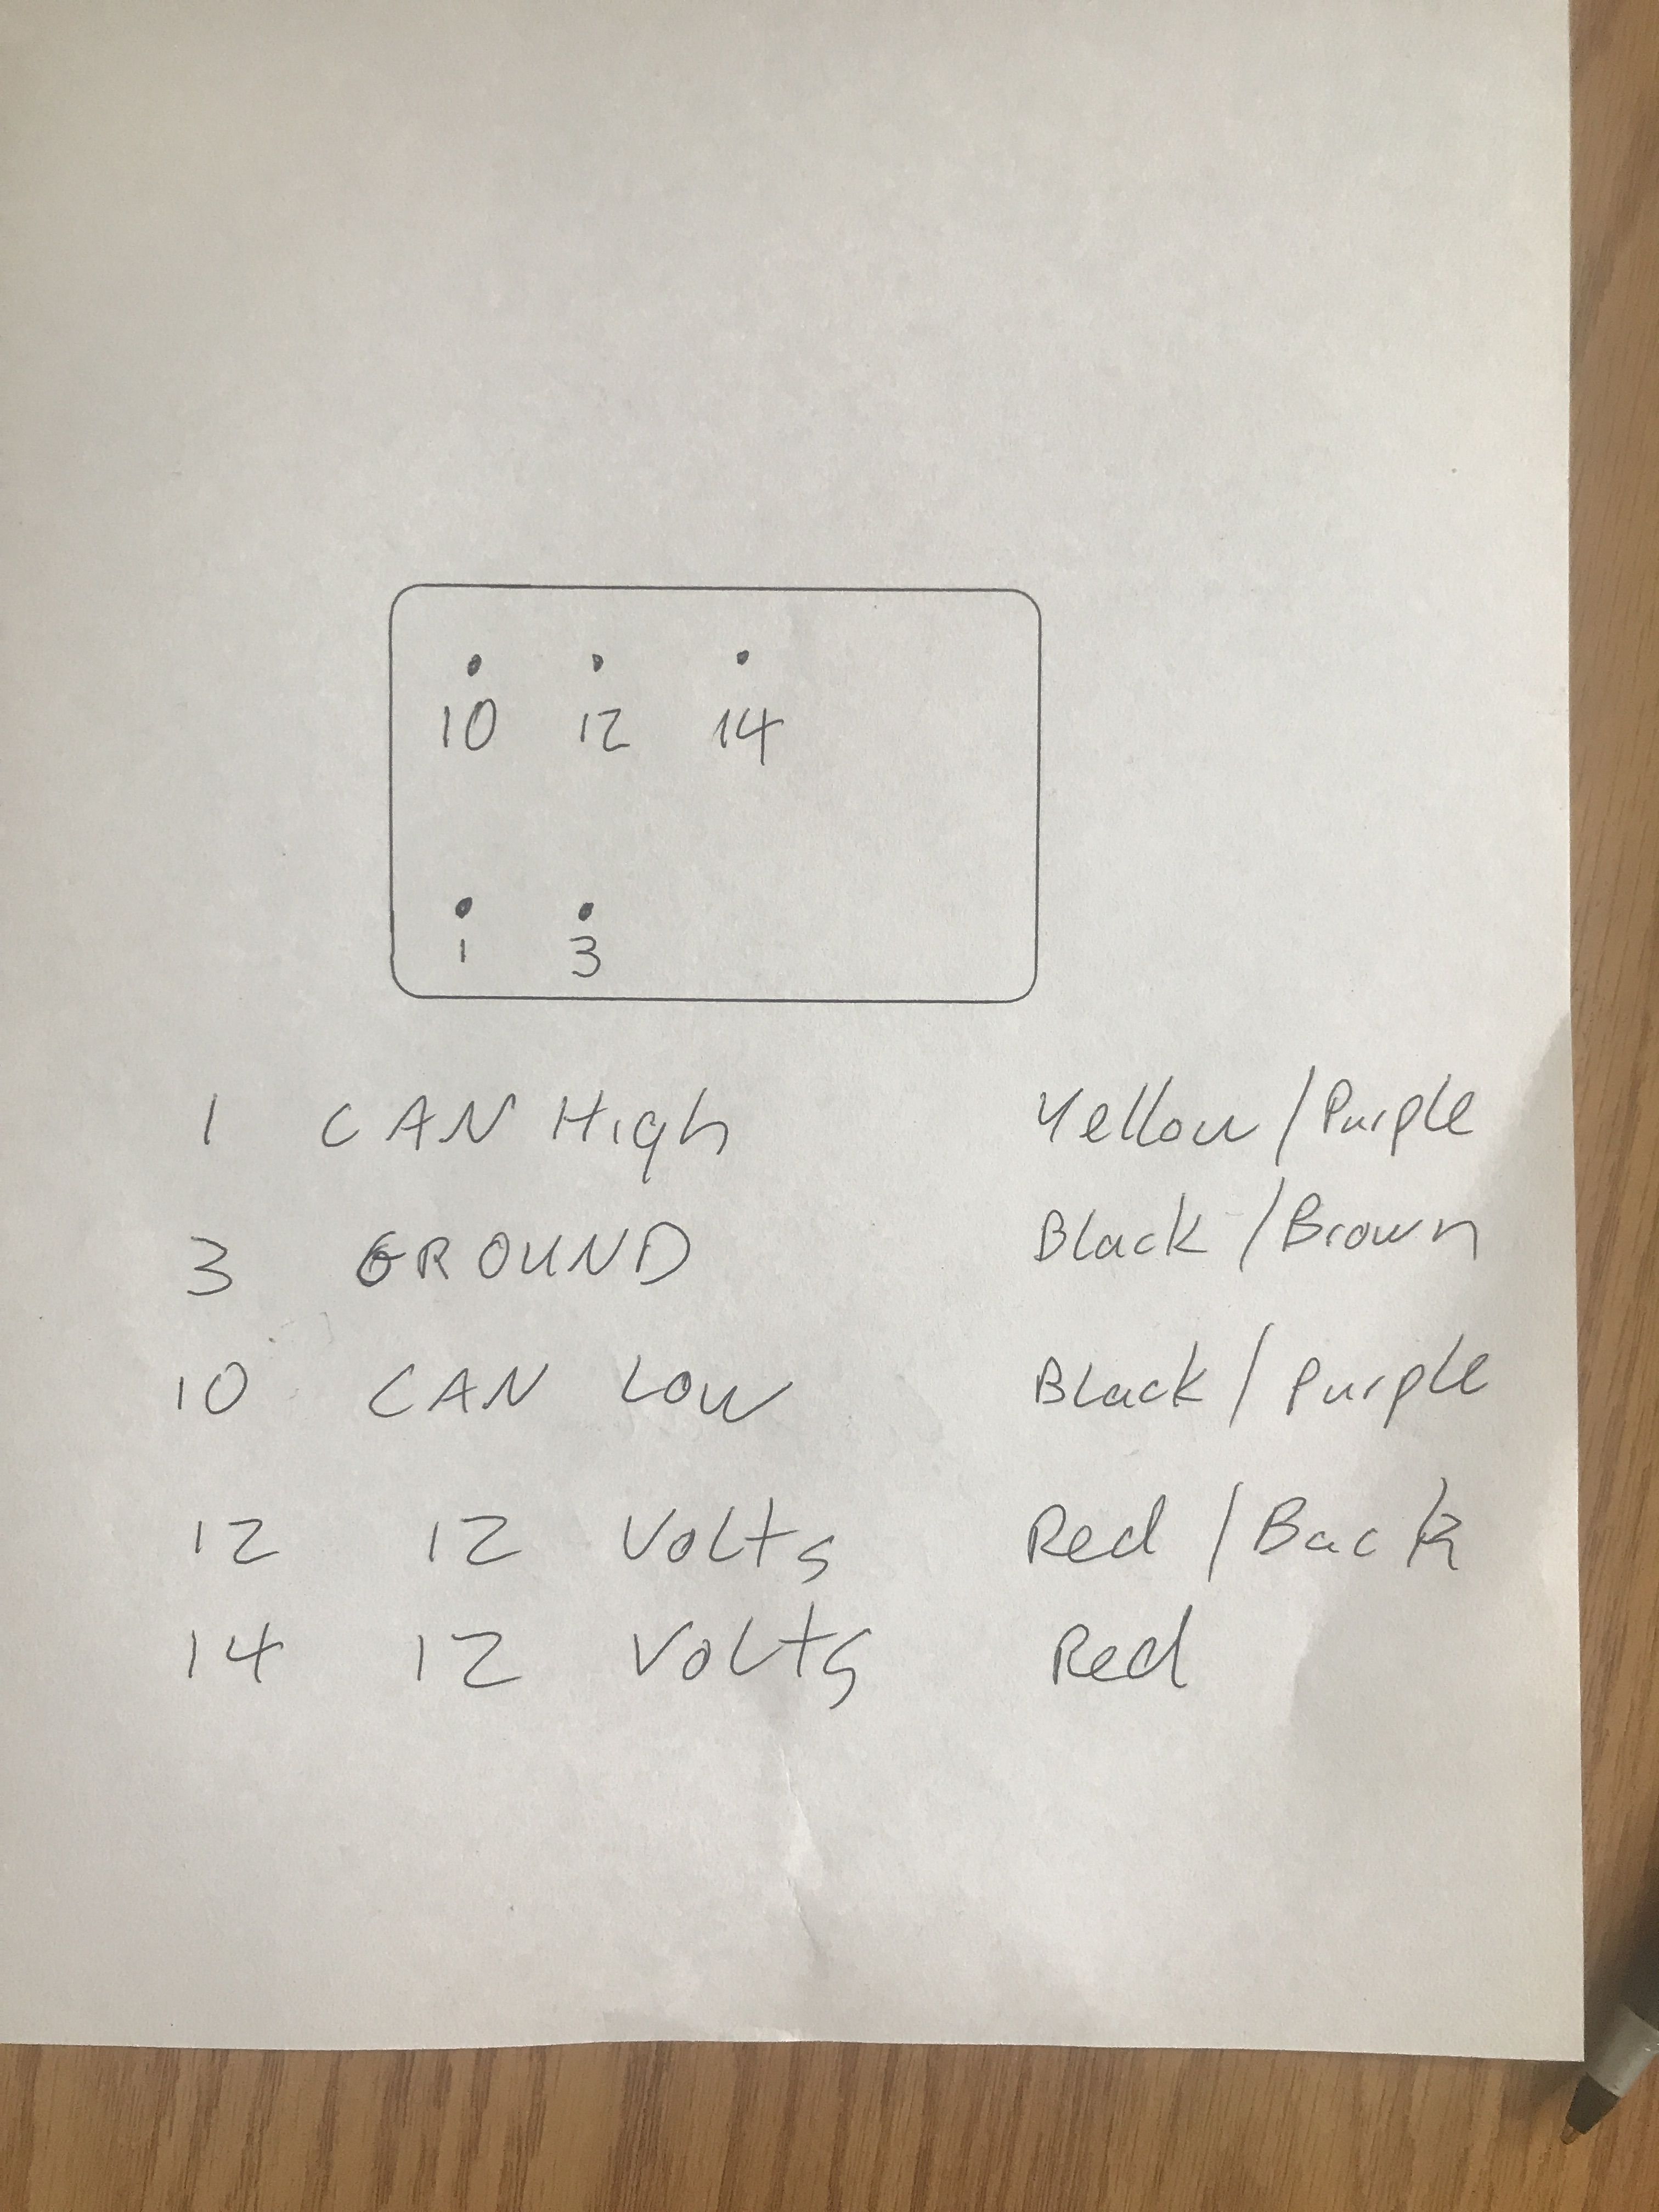 10 12 14
1 3
1 CAN High Yellow/Purple
3 GROUND Black/Brown
10 CAN Low Black/Purple
12 12 Volts Red/Back
14 12 Volts Red